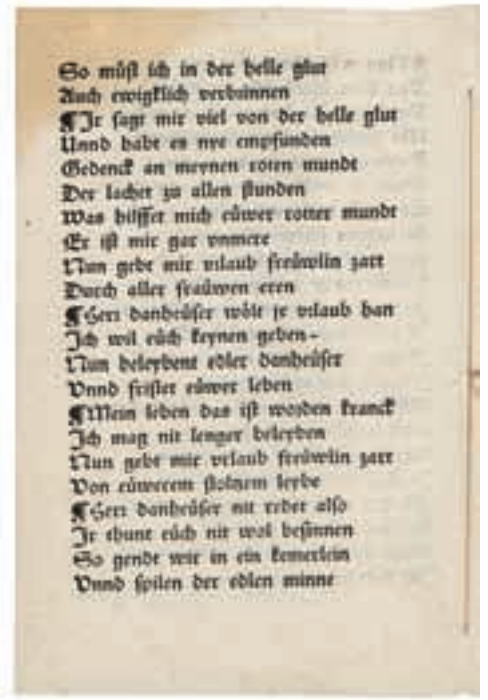 So müst ich in der helle glut
Auch ewigklich verbrinnen
¶ Ir sagt mir viel von der helle glut
Unnd habt es nye empfunden
Gedenck an meynen roten mundt
Der lachet zu allen stunden
Was hilffet mich eüwer rotter mundt
Er ist mir gar unmere
Nun gebt mir urlaub freüwlin zart
Durch aller frauwen eren
¶ Herr danheüser wölt jr urlaub han
Ich wil eüch keynen geben-
Nun beleybent edler danheüser
Vnnd fristet eüwer leben
¶ Mein leben das ist worden kranck
Ich mag nit lenger beleyben
Nun gebt mir vrlaub freüwlin zart
Von eüwerem stoltzem leybe
¶ Herr danheüser nit redet also
Ir thunt eüch nit wol besinnen
So gendt wir in ein kemerlein
Vnnd spilen der edlen minne